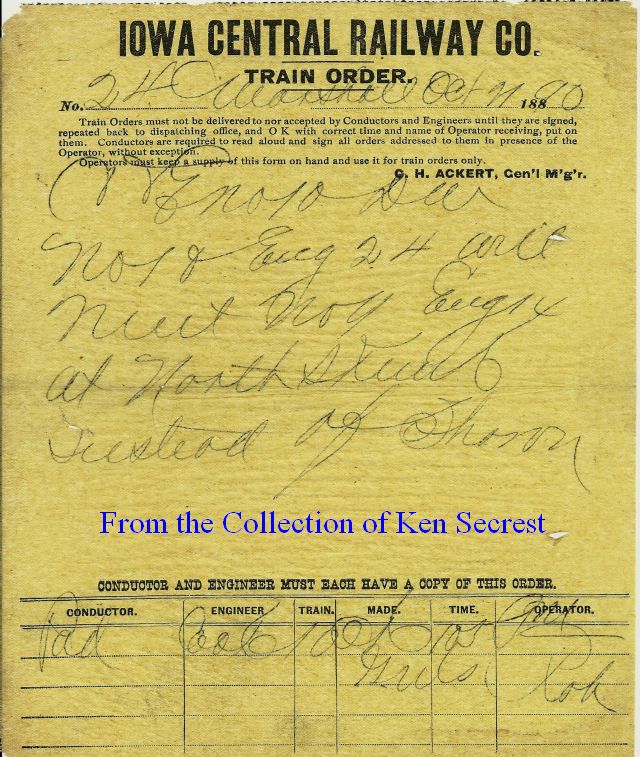 IOWA CENTRAL RAILWAY CO.
TRAIN ORDER.
No. 24 Marshall Oct 188 90
Train Orders must not be delivered to nor accepted by Conductors and Engineers until they are signed,
repeated back to dispatching office, and O K with correct time and name of Operator receiving, put on
them. Conductors are required to read aloud and sign all orders addressed to them in presence of the
Operator, without exception.
Operators must keep a supply of this form on hand and use it for train orders only.
C. H. ACKERT, Gen'l M'g'r.
No 10 Eng 24 will
Meet No 9 Eng
at North Skunk
Instead of Sharon
From the Collection of Ken Secrest
CONDUCTOR AND ENGINEER MUST EACH HAVE A COPY OF THIS ORDER.
CONDUCTOR. ENGINEER TRAIN. MADE. TIME. OPERATOR.
10